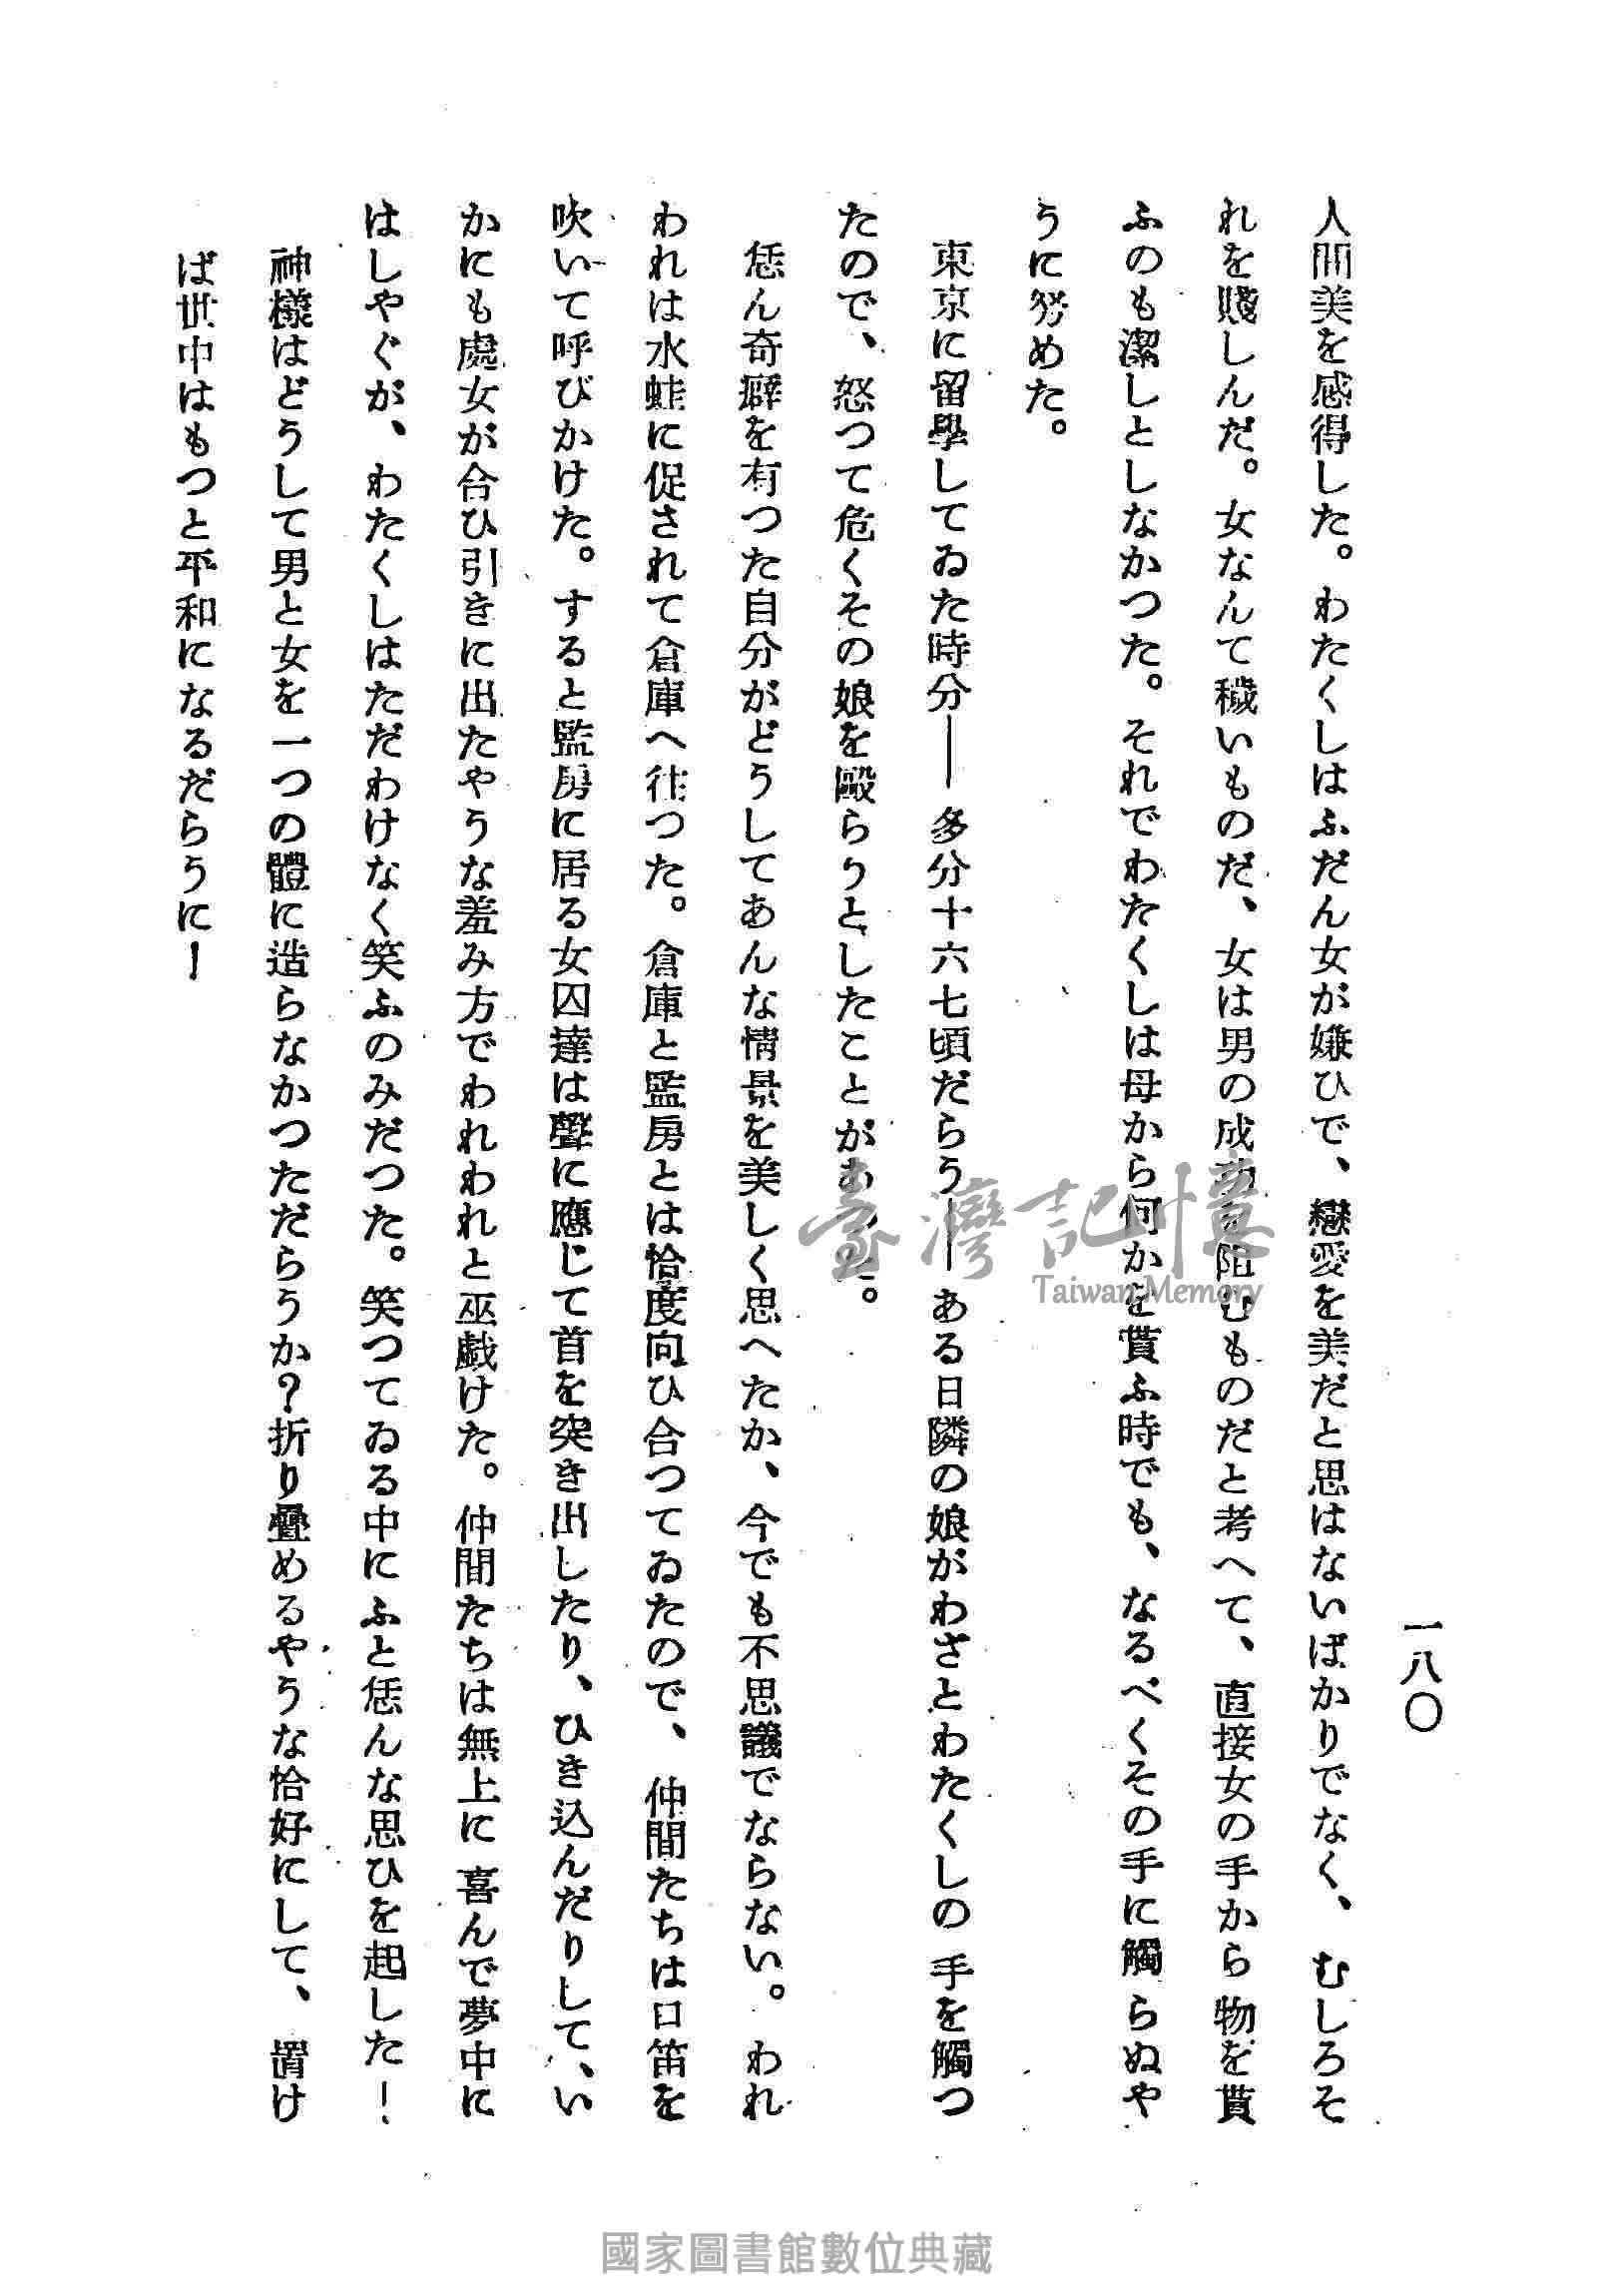 一八〇
人間美を感得した。わたくしはふだん女が嫌ひで、戀愛を美だと思はないばかりでなく、むしろそ
れを賤しんだ。女なんて穢いものだ、女は男の成功を阻むものだと考へて、直接女の手から物を貰
ふのも潔しとしなかつた。それでわたくしは母から何かを貰ふ時でも、なるべくその手に觸らぬや
うに努めた。
東京に留學してゐた時分――多分十六七頃だらう――ある日隣の娘がわざとわたくしの手を觸つ
たので、怒つて危くその娘を毆らうとしたことがあつた。
恁ん奇癖を有つた自分がどうしてあんな情景を美しく思へたか、今でも不思議でならない。われ
われは水蛙に促されて倉庫へ往つた。倉庫と監房とは恰度向ひ合つてゐたので、仲間たちは口笛を
吹いて呼びかけた。すると監房に居る女囚達は聲に應じて首を突き出したり、ひき込んだりして、い
かにも處女が合ひ引きに出たやうな羞み方でわれわれと巫戯けた。仲間たちは無上に喜んで夢中に
はしやぐが、わたくしはただわけなく笑ふのみだつた。笑つてゐる中にふと恁んな思ひを起した！
神樣はどうして男と女を一つの體に造らなかつただらうか？折り疊めるやうな恰好にして、置け
ば世中はもつと平和になるだらうにー
臺灣記憶
Taiwan Memory
國家圖書館數位典藏